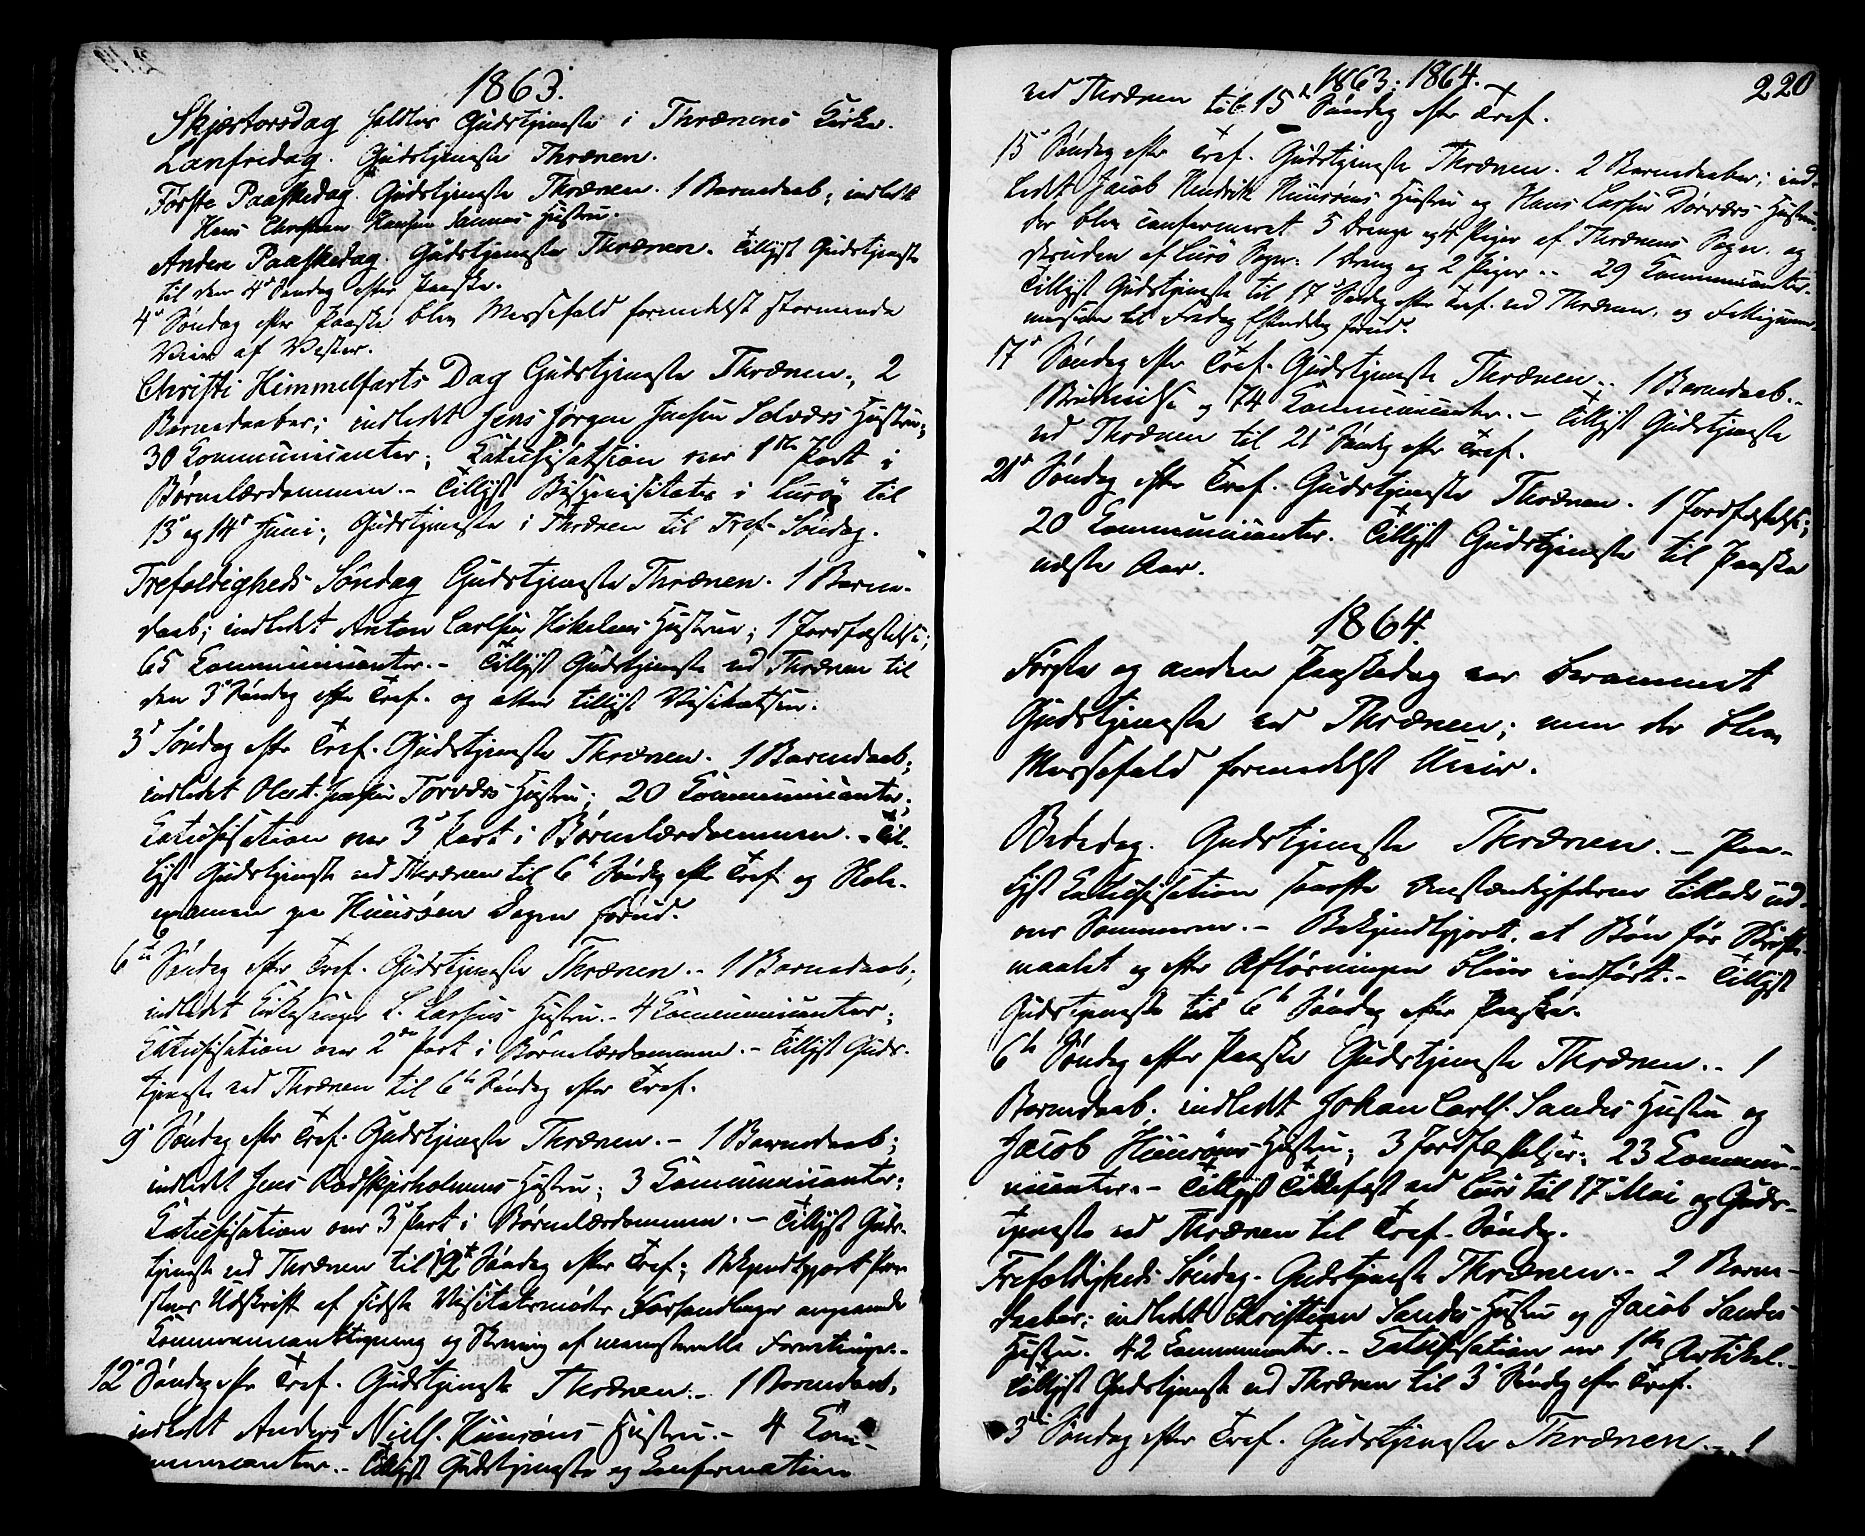 1863.
Skjærtorsdag holdtes Gudstjeneste i Thrænens Kirke.
Lanfredag. Gudstjeneste Thrænen.
Første Paaskedag. Gudstjeneste Thrænen. 1 Barnedaab; indledt
Hans Christian Hansen Sannas Hustru.
Anden Paaskedag. Gudstjeneste Thrænen. Tillyst Gudstjeneste
til den 4de Søndag efter Paaske.
4de Søndag efter Paaske blev Messefald formedelst stormende
Veir af Vester.
Christi Himmelfarts Dag Gudstjeneste Thrænen; 2
Barnedaaber; indledt Jens Jørgen Jensen Selværs Hustru;
30 Communicanter; Catechisation over 1ste Part i
Børnelærdommen. - Tillyst Bispevisitats i Lurø til
13de og 14de Juni; Gudstjeneste i Thrænen til Tref. Søndag.
Trefoldigheds Søndag Gudstjeneste Thrænen. 1 Barne-
daab; indledet Anton Carlsen Hikelens Hustrue; 1 Jordfæstelse;
65 Communicanter. - Tillyst Gudstjeneste ved Thrænen til
den 3de Søndag efter Tref. og atter tillyst Visitatsen.
3de Søndag efter Tref. Gudstjeneste Thrænen. 1 Barnedaab;
indledet Olert Hansen Torværs Hustru; 20 Communicanter;
Catechisation over 3de Part i Børnelærdommen. - Til-
lyst Gudstjeneste ved Thrænen til 6te Søndag efter Tref. og Skole-
examen paa Huusøen Dagen forud.
6te Søndag efter Tref. Gudstjeneste Thrænen. - 1 Barnedaab;
indledet Kirkesanger L. Larsens Hustru. - 4 Communicanter;
Catechisation over 2den Part i Børnelærdommen. - Tillyst Guds-
tjeneste ved Thrænen til 6te Søndag efter Tref.
9de Søndag efter Tref. Gudstjeneste Thrænen. - 1 Barnedaab;
indledet Jens Rødskjærholmens Hustru; 3 Communicanter;
Catechisation over 3de Part i Børnelærdommen. - Tillyst Guds-
tjeneste ved Thrænen til 12te Søndag efter Tref; Bekjendtgjort Præ-
stens Udskrift af sidste Visitatsmøde Forhandlinger angaaende
og af
12te Søndag efter Tref. Gudstjeneste Thrænen. - 1 Barnedaab,
indledt Anders Niels. Huusøens Hustru. - 4 Com-
municanter. - Tillyst Gudstjeneste og Confirmation
1863: 1864.
220
ved Thrænen til 15de Søndag efter Tref.
15de Søndag efter Tref. Gudstjeneste Thrænen. 2 Barnedaaber; ind-
ledet Jacob Hendrik Huusøens Hustru og Hans Larsen Dørværs Hustru.
der blev confirmeret 5 Drenge og 4 Piger af Thrænens Sogn, og
desuden af Lurø Sogn: 1 Dreng og 2 Piger. - 29 Communicanter.
Tillyst Gudstjeneste til 17de Søndag efter Tref. ved Thrænen, og
til Fredag forud.
17de Søndag efter Tref. Gudstjeneste Thrænen. 1 Barnedaab.
1 og 74 Communicanter. - Tillyst Gudstjeneste
ved Thrænen til 21de Søndag efter Tref.
21de Søndag efter Tref. Gudstjeneste Thrænen. 1 Jordfæstelse;
20 Communicanter. Tillyst Gudstjeneste til Paaske
næste Aar.
1864.
Første og anden Paaskedag var berammet
Gudstjeneste ved Thrænen; men der blev
Messefald formedelst Uveir.
Bededag. Gudstjeneste Thrænen. - Paa-
lyst Catechisation saaofte Omstændighederne tillade ud-
over Sommeren. - Bekjendtgjort, at Bøn før Skrifte-
maalet og efter Afløsningen bliver indført. - Tillyst
Gudstjeneste til 6te Søndag efter Paaske.
6te Søndag efter Paaske Gudstjeneste Thrænen. - 1
Barnedaab, indledt Johan Carls. Sandes Hustru og
Jacob Huusøens Hustru; 3 Jordfæstelser; 23 Commu-
nicanter. - Tillyst ved Lurø til 17de Mai og Guds-
tjeneste ved Thrænen til Tref. Søndag.
Trefoldigheds Søndag. Gudstjeneste Thrænen. - 2 Barne-
daaber; indledt Christian Sandes Hustru og Jacob Sandes
Hustru. 42 Communicanter. - Catechisation over 1ste Artikel. -
Tillyst Gudstjeneste ved Thrænen til 3de Søndag efter Tref.
3die Søndag efter Tref. Gudstjeneste Thrænen. - 1